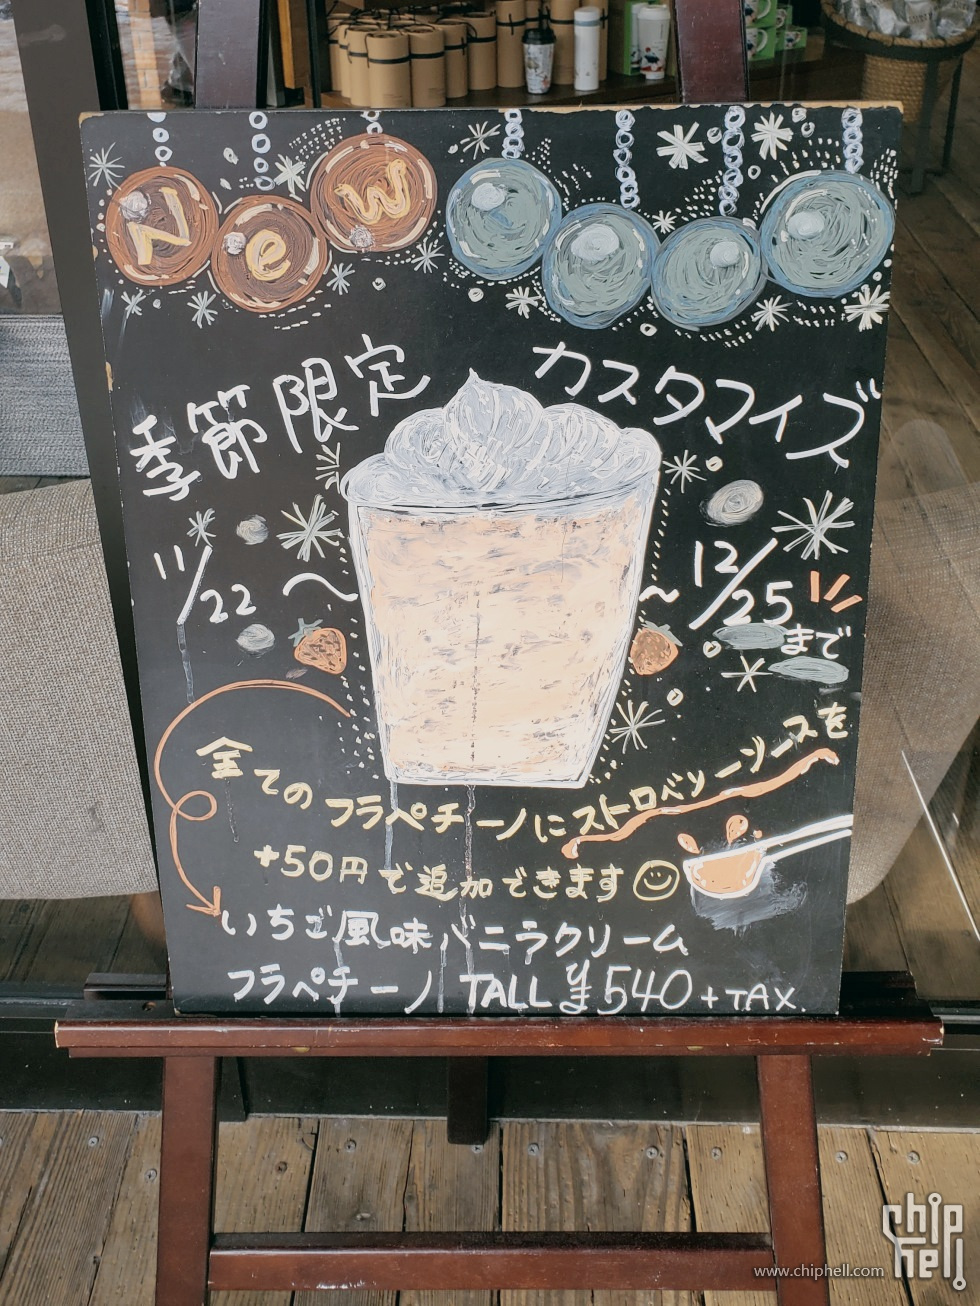 New
季節限定 カスタマイズ
11/22 〜 〜 12/25
まで
全てのフラペチーノにストロベリーソースを
+50円で追加できます
いちご風味バニラクリーム
フラペチーノ TALL ¥540+TAX.
chip
hell
www.chiphell.com